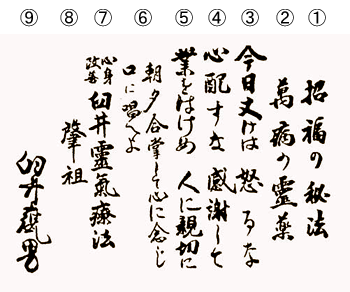 ①招福の秘法
②萬病の霊薬
③今日丈けは怒るな
④心配すな感謝して
⑤業をはげめ人に親切に
⑥朝夕合掌して心に念じ
口に唱へよ
⑦心身改善臼井靈氣療法
⑧肇祖
⑨臼井甕男